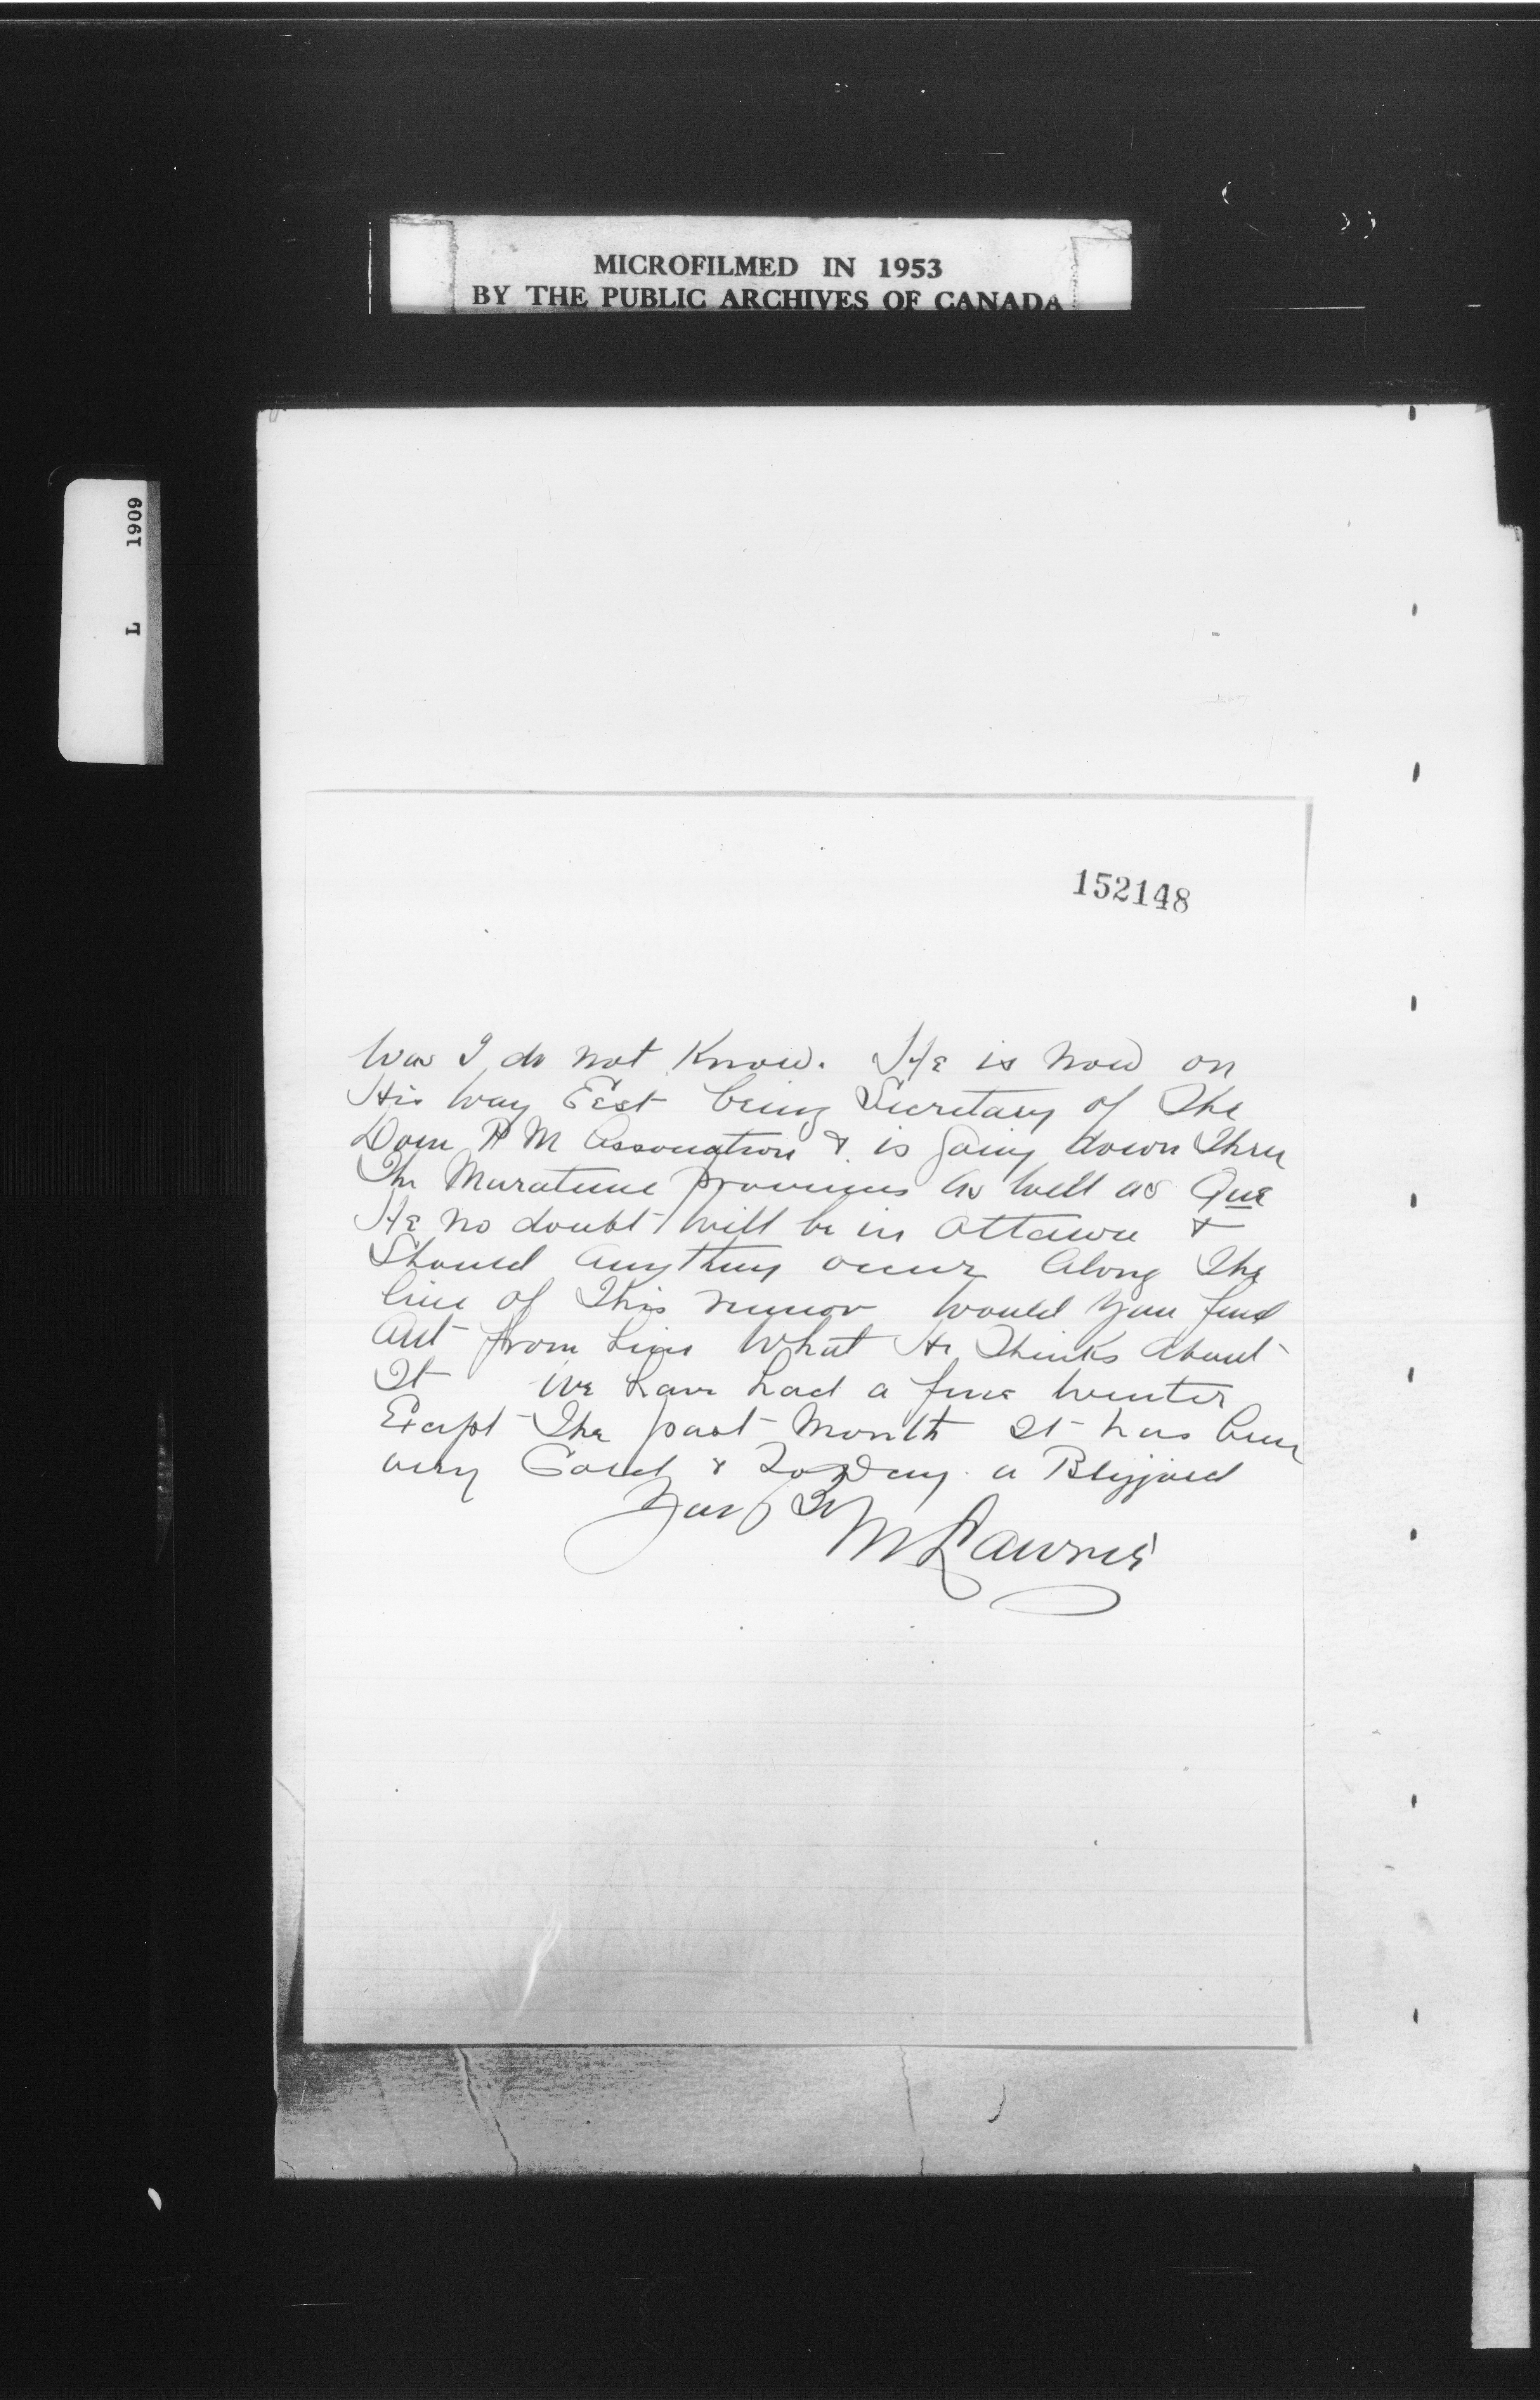 MICROFILMED IN 1953
BY THE PUBLIC ARCHIVES OF CANADA
1909
L
152148
Was I do not Know. He is now on
His way East being Secretary of The
Dom P M Association & is going down Thru
The Maratime provinces as well as Que
He no doubt will be in Ottawa &
Should anything occur along The
line of This rumor would you find
out from him what He Thinks about
It We have had a fine winter
Except The past Month It has been
very Cold & To Day a Blizzard
Yours Tr
M